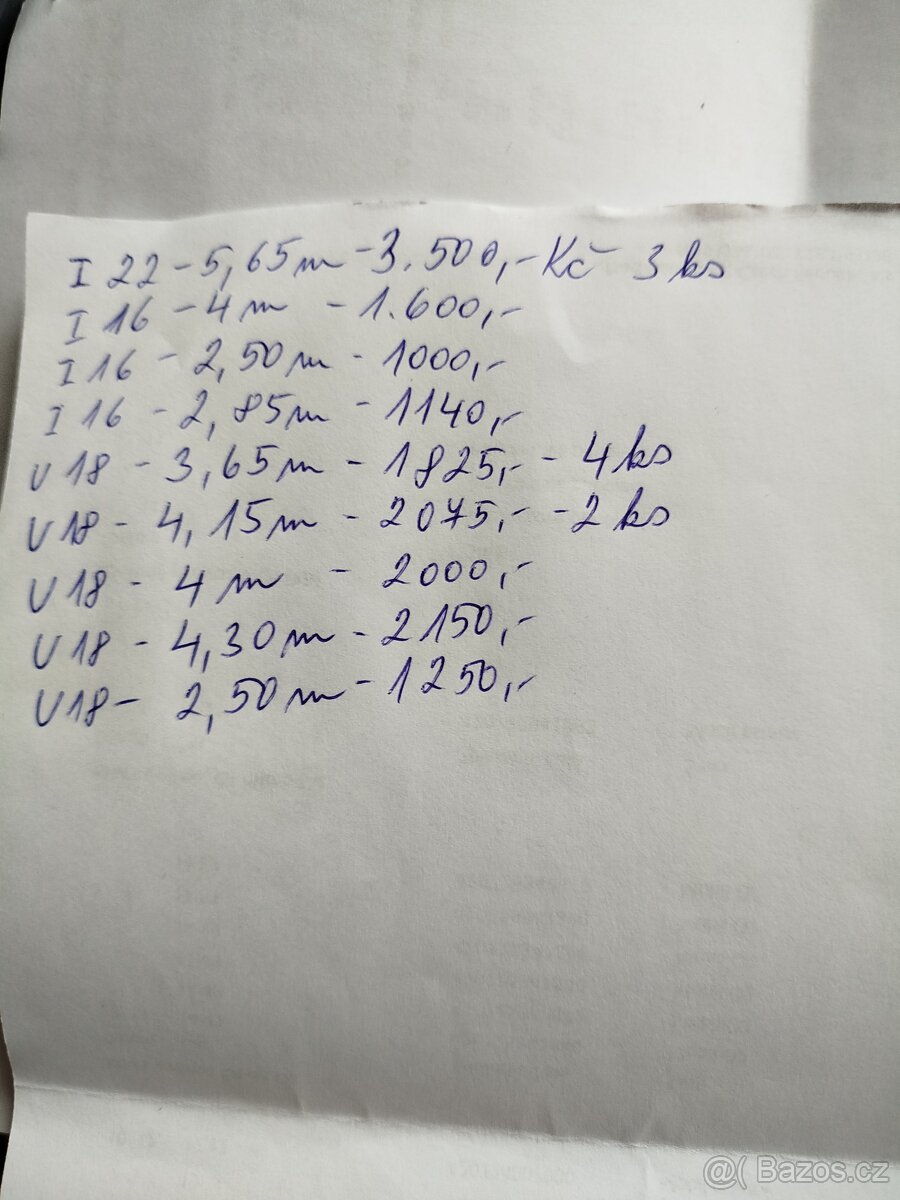 I 22 - 5,65m - 3.500,- Kč 3 ks
I 16 - 4m - 1.600,-
I 16 - 2,50m - 1000,-
I 16 - 2,85m - 1140,-
U 18 - 3,65m - 1825,- - 4 ks
U 18 - 4,15m - 2075,- - 2 ks
U 18 - 4 m - 2000,-
U 18 - 4,30m - 2150,-
U 18 - 2,50m - 1250,-
@( Bazos.cz